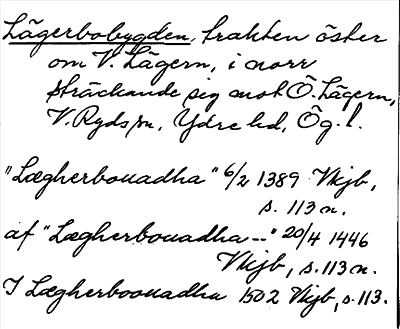 Lägerbobygden, trakten öster
om V. Lägern, i norr
sträckande sig mot Ö. Lägern,
V. Ryds sn, Ydre hd, Ög. l.
"Lægherbouadha" 6/2 1389 Vkjb,
s. 113 n.
af "Lægherbouadha --" 20/4 1446
Vkjb, s. 113 n.
I Lægherboouadha 1502 Vkjb, s. 113.